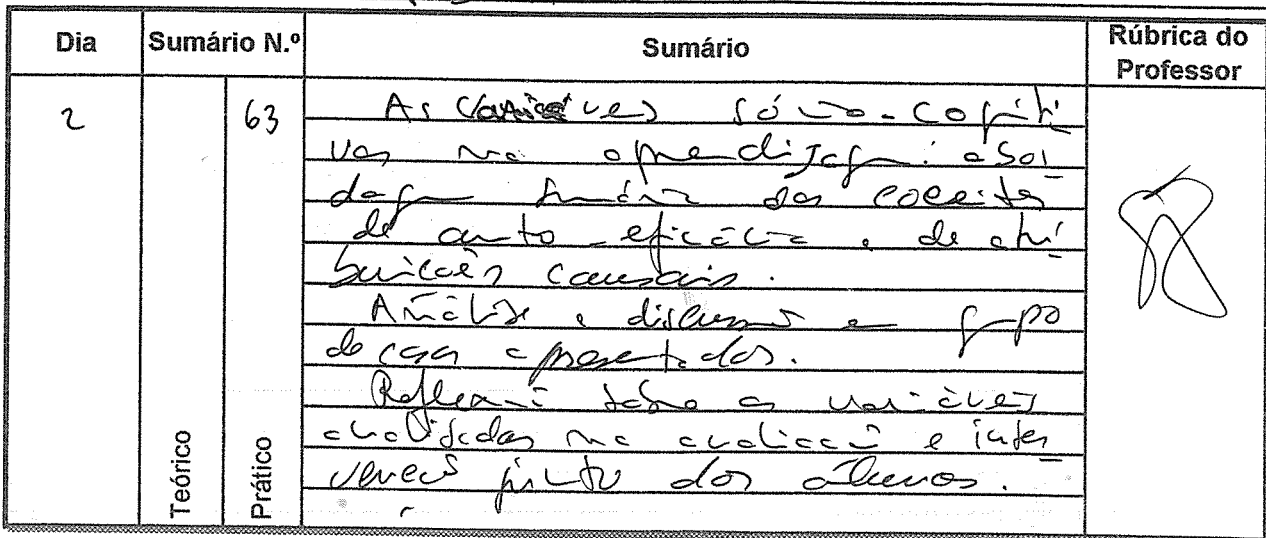 Dia Sumário N.º Sumário Rúbrica do Professor
2 63 As variáveis sócio-cogniti
vas na aprendizagem: abor
dagem sumária dos conceitos
de auto-eficácia e de atri
buições causais.
Análise e discussão em grupo
de casos apresentados.
Reflexão sobre as variáveis
analisadas na avaliação e inter
venção junto dos alunos.
Teórico
Prático